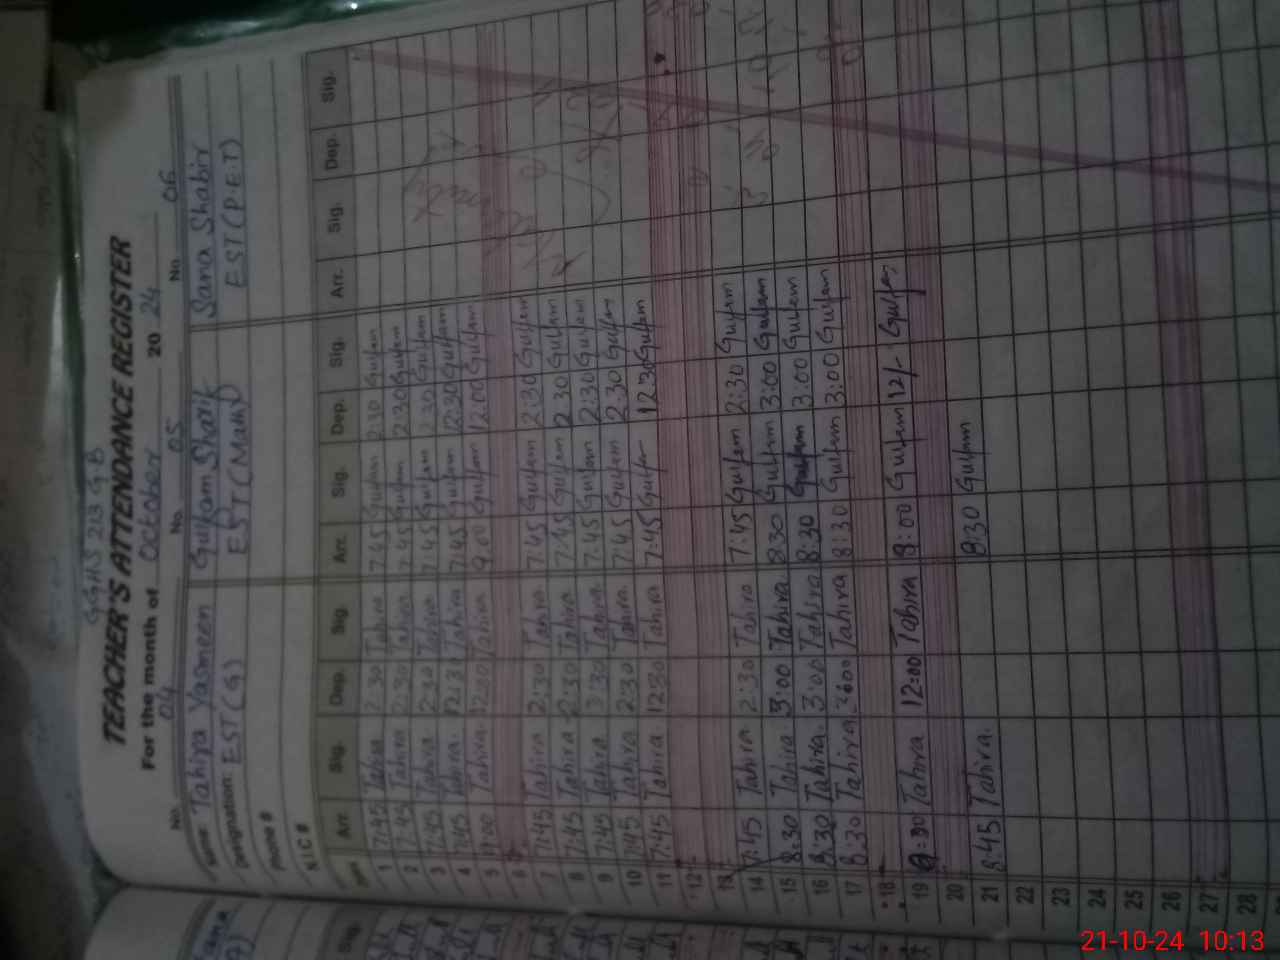 GGHS 213 GB
TEACHER'S ATTENDANCE REGISTER
For the month of October 20 24
No. 04 No. 05 No. 06
Name: Tahira Yasmeen Gulfam Sharif Sana Shabir
Designation: EST (G) EST (Math) EST (P.E.T)
Phone #
NIC #
Date Arr. Sig. Dep. Sig. Arr. Sig. Dep. Sig. Arr. Sig. Dep. Sig.
1 7:45 Tahira 2:30 Tahira 7:45 Gulfam 2:30 Gulfam
2 7:45 Tahira 2:30 Tahira 7:45 Gulfam 2:30 Gulfam
3 7:45 Tahira 2:30 Tahira 7:45 Gulfam 2:30 Gulfam
4 7:45 Tahira 12:30 Tahira 7:45 Gulfam 12:30 Gulfam
5 9:00 Tahira 12:00 Tahira 9:00 Gulfam 12:00 Gulfam
6
7 7:45 Tahira 2:30 Tahira 7:45 Gulfam 2:30 Gulfam
8 7:45 Tahira 2:30 Tahira 7:45 Gulfam 2:30 Gulfam
9 7:45 Tahira 2:30 Tahira 7:45 Gulfam 2:30 Gulfam
10 7:45 Tahira 2:30 Tahira 7:45 Gulfam 2:30 Gulfam
11 7:45 Tahira 12:30 Tahira 7:45 Gulfam 12:30 Gulfam
12
13
14 7:45 Tahira 2:30 Tahira 7:45 Gulfam 2:30 Gulfam
15 8:30 Tahira 3:00 Tahira 8:30 Gulfam 3:00 Gulfam
16 8:30 Tahira 3:00 Tahira 8:30 Gulfam 3:00 Gulfam
17 8:30 Tahira 3:00 Tahira 8:30 Gulfam 3:00 Gulfam
18
19 Tahira 12:00 Tahira 8:00 Gulfam 12/- Gulfam
20
21 8:45 Tahira 8:30 Gulfam
22
23
24
25
26
27
28
21-10-24 10:13